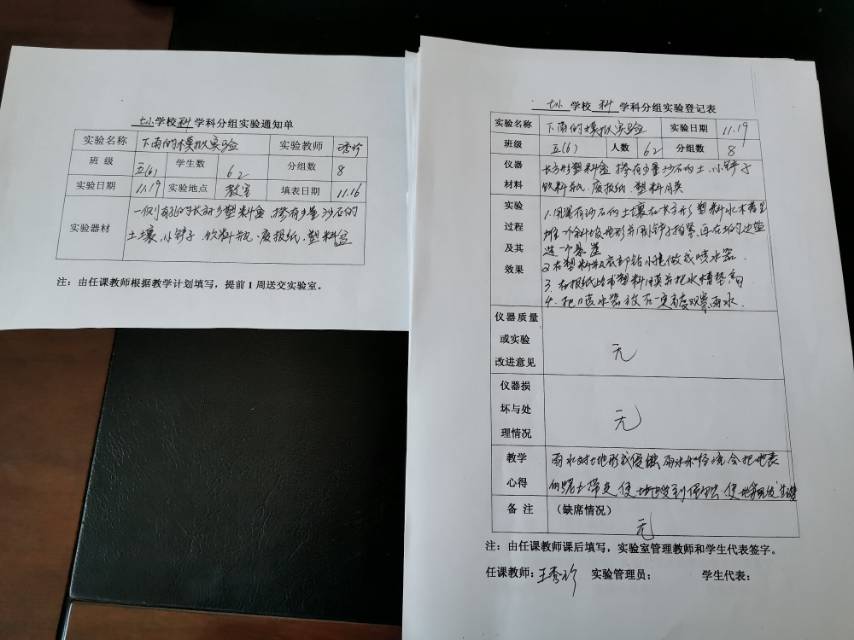 学校科学科分组实验通知单
实验名称 下雨的模拟实验 实验教师 秀珍
班级 五(6) 学生数 62 分组数 8
实验日期 11.19 实验地点 教室 填表日期 11.16
实验器材
一侧有孔的长方形塑料盒 掺有少量沙石的
土壤、小铲子、饮料瓶、废报纸、塑料盒
注：由任课教师根据教学计划填写，提前1周送交实验室。
学校科学科分组实验登记表
实验名称 下雨的模拟实验 实验日期 11.19
班级 五(6) 人数 62 分组数 8
仪器材料
长方形塑料盒 掺有少量沙石的土、小铲子
饮料瓶、废报纸、塑料
实验过程及其效果
1.用混有沙石的土壤在长方形塑料水槽里
堆个斜坡地形并用小铲子拍紧,再在坡的
造一个
2.在塑料瓶底部钻小孔做成喷水器
3.在报纸上 塑料 并把水槽垫高
4.把喷水器放在一定高度 雨水
仪器质量或实验改进意见 无
仪器损坏与处理情况 无
教学心得
雨水对土地形成侵蚀 雨水和径流会把地表
的 带走 使 受到侵蚀 使地
备注 （缺席情况） 无
注：由任课教师课后填写，实验室管理教师和学生代表签字。
任课教师：王秀珍 实验管理员： 学生代表：